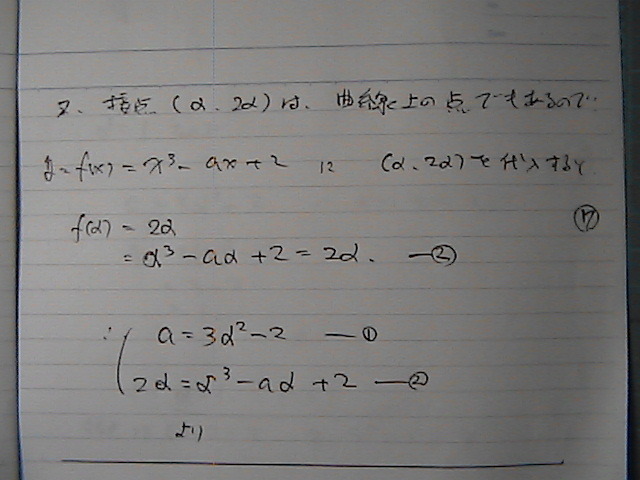 又、接点 (α、2α) は、曲線c上の点でもあるので…
y=f(x) = x³ - ax + 2 に (α、2α) を代入すると
f(α) = 2α
㋆
= α³ - aα + 2 = 2α. —②
∴ a = 3α² - 2 —①
2α = α³ - aα + 2 —②
より